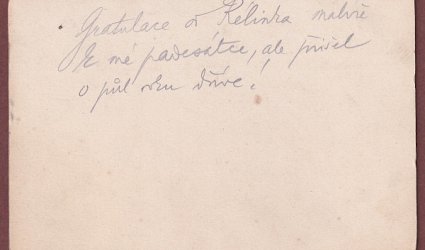 Gratulace od Řelínka malíře
k mé padesátce, ale přišel
o půl roku dříve!